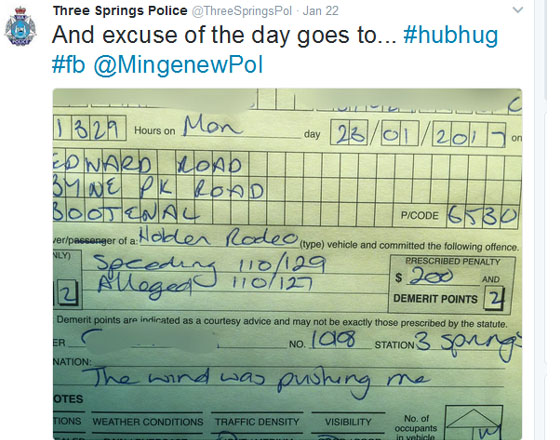 Three Springs Police @ThreeSpringsPol · Jan 22
And excuse of the day goes to... #hubhug
#fb @MingenewPol
1329 Hours on Mon day 23/01/2017 on
EDWARD ROAD
BYNE PK ROAD
BOOTENAL P/CODE 6530
ver/passenger of a: Holden Rodeo (type) vehicle and committed the following offence.
NLY) Speeding 110/129 PRESCRIBED PENALTY
2 Alleged 110/127 $ 200 AND
DEMERIT POINTS 2
Demerit points are indicated as a courtesy advice and may not be exactly those prescribed by the statute.
ER NO. STATION 3 springs
NATION:
The wind was pushing me
OTES
TIONS WEATHER CONDITIONS TRAFFIC DENSITY VISIBILITY No. of
occupants
in vehicle